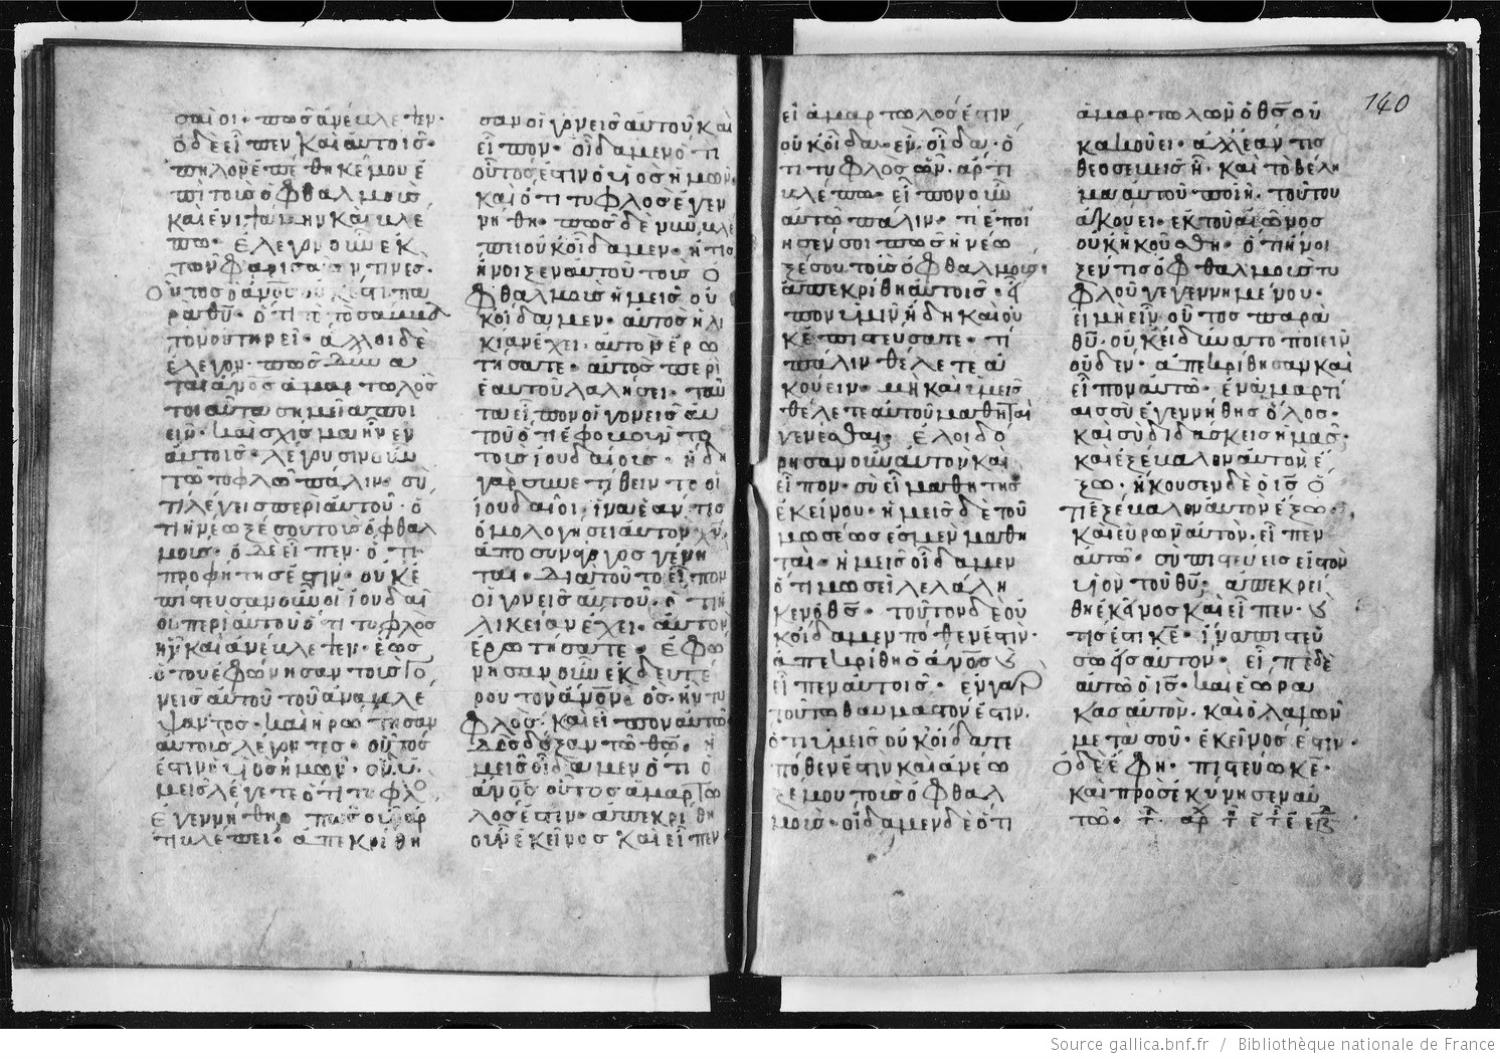 σαῖοι· πῶς ἀνέβλεψεν·
ὁ δὲ εἶπεν καὶ αὐτοῖς·
πηλὸν ἐπέθηκέ μου ἐ
πὶ τοὺς ὀφθαλμοὺς
καὶ ἐνιψάμην καὶ βλέ
πω· ἔλεγον οὖν ἐκ
τῶν φαρισαίων τινές·
οὗτος ὁ ἄνος οὐκ ἔστι πα
ρὰ θῦ· ὅτι τὸ σάββα
τον οὐ τηρεῖ· ἄλλοι δὲ
ἔλεγον· πῶς δύνα
ται ἄνος ἁμαρτωλὸς
τοιαῦτα σημεῖα ποι
εῖν· καὶ σχίσμα ἦν ἐν
αὐτοῖς· λέγουσιν οὖν
τῶ τυφλῶ πάλιν· σὺ
τί λέγεις περὶ αὐτοῦ· ὅ
τι ἠνέωξέ σου τοὺς ὀφθαλ
μούς· ὁ δὲ εἶπεν· ὅτι
προφήτης ἐστίν· οὐκ ἐ
πίστευσαν οὖν οἱ ἰουδαῖ
οι περὶ αὐτοῦ ὅτι τυφλὸς
ἦν καὶ ἀνέβλεψεν· ἕως
ὅτου ἐφώνησαν τοὺς γο
νεῖς αὐτοῦ τοῦ ἀναβλέ
ψαντος· καὶ ἠρώτησαν
αὐτοὺς λέγοντες· οὗτός
ἐστιν ὁ υἱὸς ἡμῶν· ὃν ὑ
μεῖς λέγετε ὅτι τυφλὸ
ἐγεννήθη· πῶς οὖν ἄρ
τι βλέπει· ἀπεκρίθη
σαν οἱ γονεῖς αὐτοῦ καὶ
εἶπον· οἴδαμεν ὅτι
οὗτός ἐστιν ὁ υἱὸς ἡμῶν·
καὶ ὅτι τυφλὸς ἐγεν
νήθη· πῶς δὲ νῦν βλέ
πει οὐκ οἴδαμεν· ἢ τίς
ἤνοιξεν αὐτοῦ τοὺς ὀ
φθαλμοὺς ἡμεῖς οὐ
κ οἴδαμεν· αὐτὸς ἡλι
κίαν ἔχει· αὐτὸν ἐρω
τήσατε· αὐτὸς περὶ
ἑαυτοῦ λαλήσει· ταῦ
τα εἶπον οἱ γονεῖς αὐ
τοῦ ὅτι ἐφοβοῦντο
τοὺς ἰουδαίους· ἤδη
γὰρ συνετέθειντο οἱ
ἰουδαῖοι· ἵνα ἐάν τις
ὁμολογήσει αὐτὸν χν̄
ἀποσυνάγωγος γένη
ται· διὰ τοῦτο εἶπον
οἱ γονεῖς αὐτοῦ· ὅτι ἡ
λικείαν ἔχει· αὐτὸν
ἐρωτήσατε· ἐφώ
νησαν οὖν ἐκ δευτέ
ρου τὸν ἄνον ὃς ἦν τυ
φλὸς· καὶ εἶπον αὐτῶ
δὸς δόξαν τῶ θω̄· ἡ
μεῖς οἴδαμεν ὅτι ὁ
ἄνος οὗτος ἁμαρτω
λός ἐστιν· ἀπεκρίθη
οὖν ἐκεῖνος καὶ εἶπεν
εἰ ἁμαρτωλός ἐστιν
οὐκ οἶδα· ἓν οἶδα· ὅ
τι τυφλὸς ὢν· ἄρτι
βλέπω· εἶπον οὖν
αὐτῶ πάλιν· τί ἐποί
ησέν σοι πῶς ἠνέω
ξέ σου τοὺς ὀφθαλμούς·
ἀπεκρίθη αὐτοῖς· εἶ
πον ὑμῖν ἤδη καὶ οὐ
κ ἐπιστεύσατε· τί
πάλιν θέλετε ἀ
κούειν· μὴ καὶ ὑμεῖς
θέλετε αὐτοῦ μαθηταὶ
γενέσθαι· ἐλοιδό
ρησαν οὖν αὐτὸν καὶ
εἶπον· σὺ εἶ μαθητὴς
ἐκείνου· ἡμεῖς δὲ τοῦ
μωσέως ἐσμὲν μαθη
ταί· ἡμεῖς οἴδαμεν
ὅτι μωσεῖ λελάλη
κεν ὁ θς̄· τοῦτον δὲ οὐ
κ οἴδαμεν πόθεν ἐστίν·
ἀπεκρίθη ὁ ἄνος καὶ
εἶπεν αὐτοῖς· ἐν γὰρ
τούτω θαυμαστόν ἐστιν·
ὅτι ὑμεῖς οὐκ οἴδατε
πόθεν ἐστὶν καὶ ἀνέω
ξέ μου τοὺς ὀφθαλ
μούς· οἴδαμεν δὲ ὅτι
ἁμαρτωλῶν ὁ θς̄ οὐ
κ ἀκούει· ἀλλ ἐάν τις
θεοσεβεὶς ἦ· καὶ τὸ θέλη
μα αὐτοῦ ποιῆ· τούτου
ἀκούει· ἐκ τοῦ αἰῶνος
οὐκ ἠκούσθη· ὅτι ἤνοι
ξέν τις ὀφθαλμοὺς τυ
φλοῦ γεγεννημένου·
εἰ μὴ ἦν οὗτος παρὰ
θῦ· οὐκ ἐδύνατο ποιεῖν
οὐδέν· ἀπεκρίθησαν καὶ
εἶπον αὐτῶ· ἐν ἁμαρτί
αις σὺ ἐγεννήθης ὅλος·
καὶ σὺ διδάσκεις ἡμᾶς·
καὶ ἐξέβαλον αὐτὸν ἔ
ξω· ἤκουσεν δὲ ὁ ις̄ ὅ
τι ἐξέβαλον αὐτὸν ἔξω·
καὶ εὑρὼν αὐτὸν· εἶπεν
αὐτῶ· σὺ πιστεύεις εἰς τὸν
υἱὸν τοῦ θῦ· ἀπεκρεί
θη ἐκεῖνος καὶ εἶπεν· καὶ
τίς ἐστι κε̄· ἵνα πιστεύ
σω εἰς αὐτόν· εἶπε δὲ
αὐτῶ ὁ ις̄· καὶ ἑώρα
κας αὐτὸν· καὶ ὁ λαλῶν
μετὰ σοῦ· ἐκεῖνός ἐστιν·
ὁ δὲ ἔφη· πιστεύω κε̄·
καὶ προσεκύνησεν αὐ
τῶ·
140
Source gallica.bnf.fr / Bibliothèque nationale de France